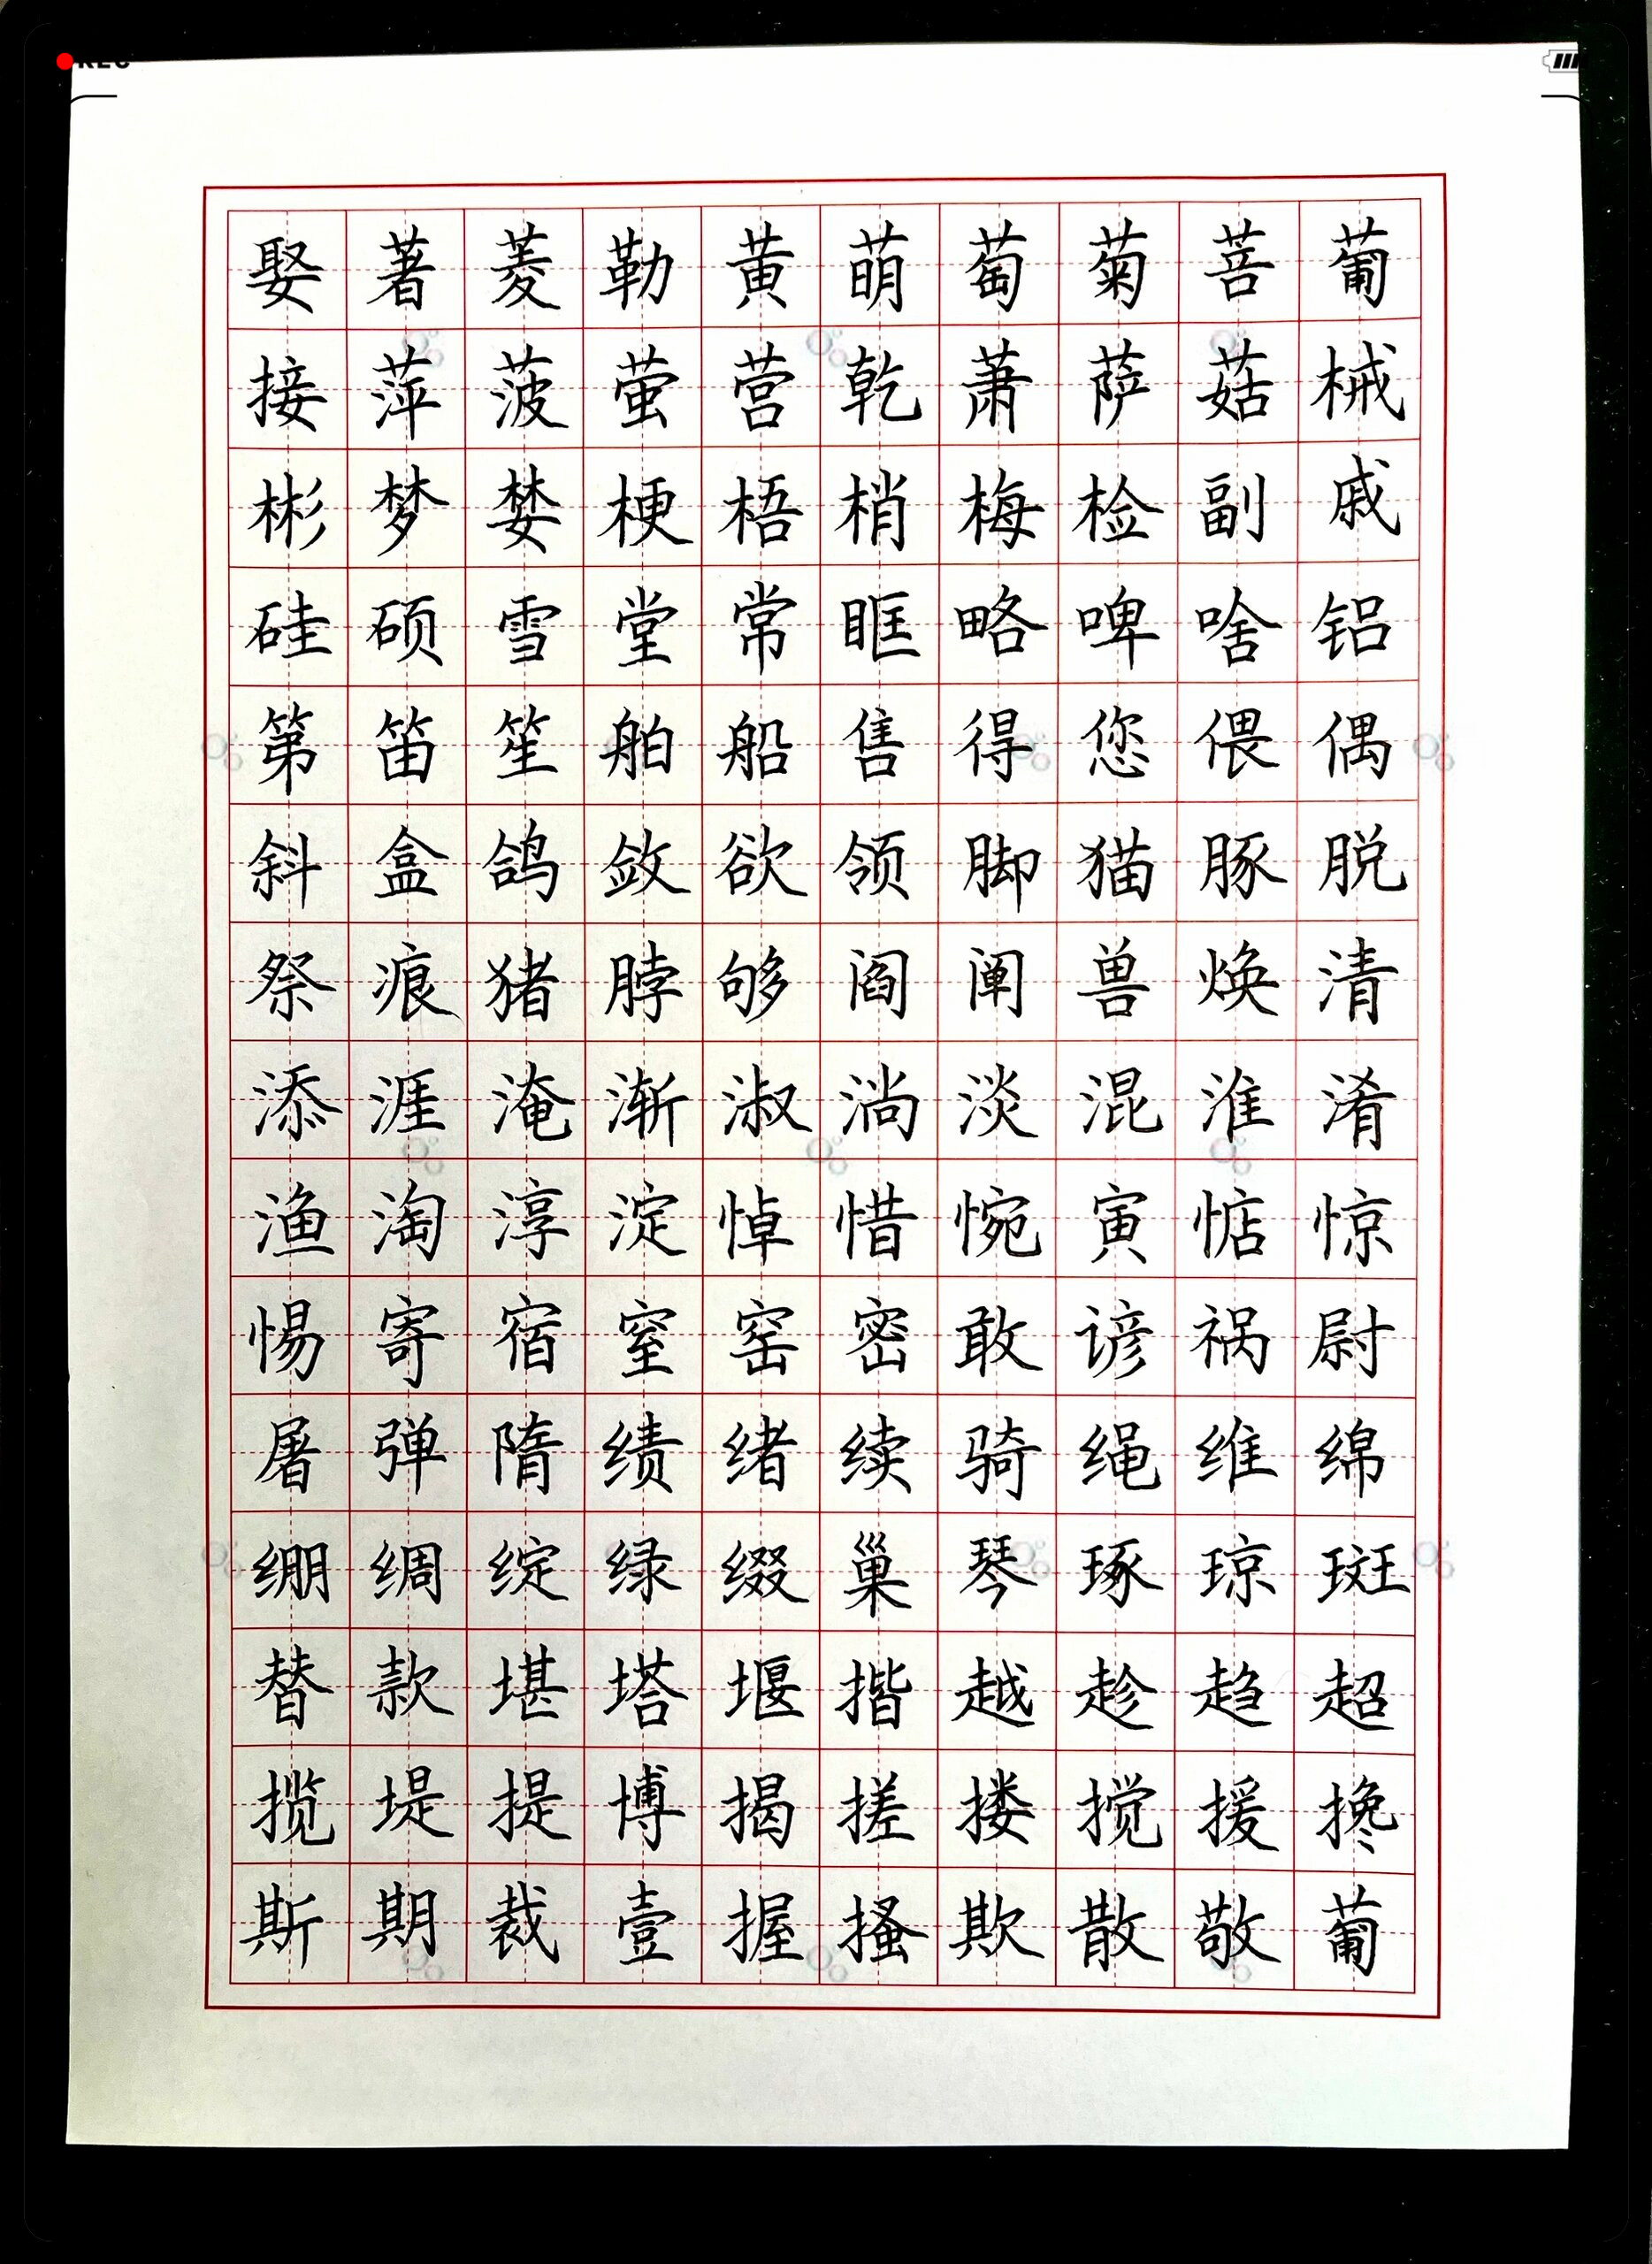 REC
娶著菱勒黄萌萄菊菩葡
接萍菠萤营乾萧萨菇械
彬梦婪梗梧梢梅检副戚
硅硕雪堂常眶略啤啥铝
第笛笙舶船售得您偎偶
斜盒鸽敛欲领脚猫豚脱
祭痕猪脖够阎阐兽焕清
添涯淹渐淑淌淡混淮淆
渔淘淳淀悼惜惋寅惦惊
惕寄宿窒窑密敢谚祸尉
屠弹隋绩绪续骑绳维绵
绷绸绽绿缀巢琴琢琼斑
替款堪塔堰揩越趁趋超
揽堤提博揭搓搂搅援搀
斯期裁壹握搔欺散敬葡